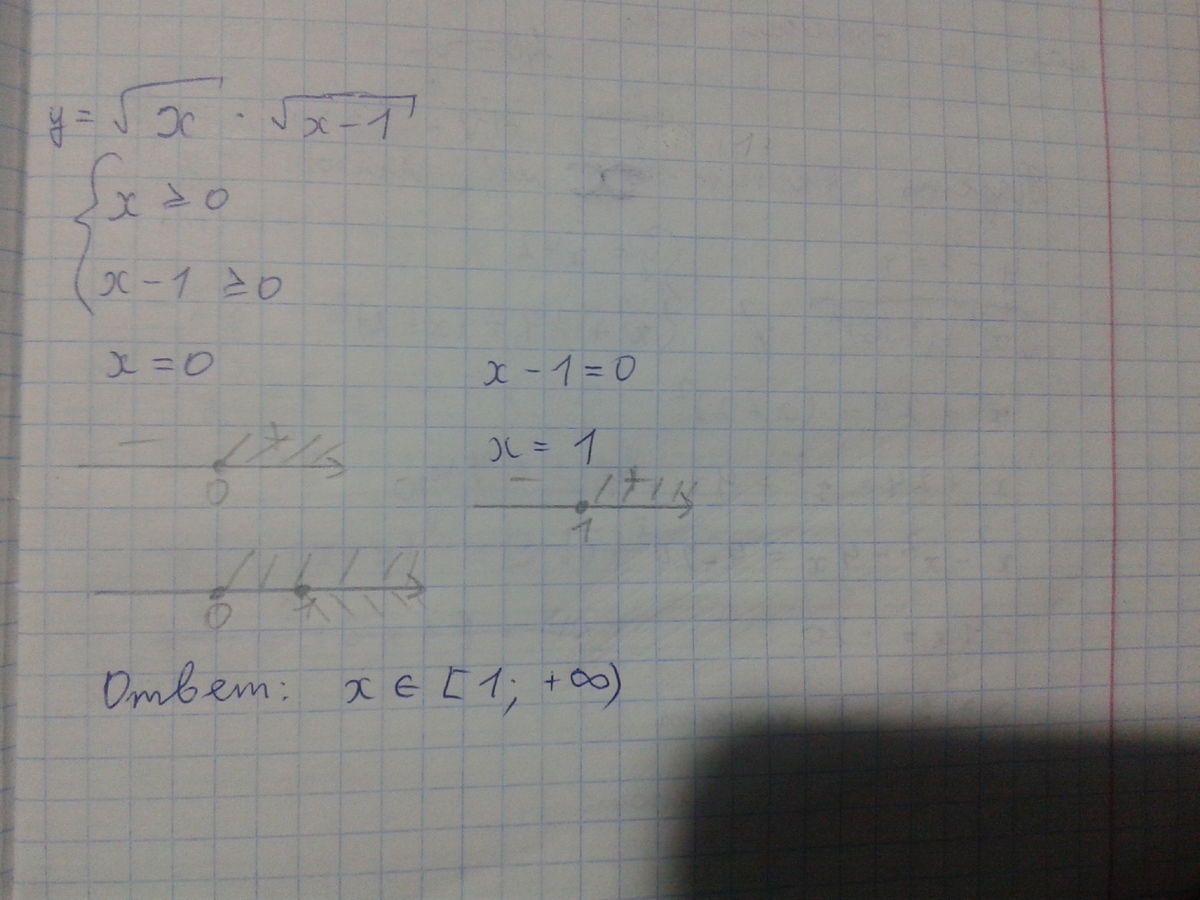 y = √x · √x-1
{ x ≥ 0
x - 1 ≥ 0
x = 0
x - 1 = 0
x = 1
- +
0
- +
1
0 1
Ответ: x ∈ [1; +∞)